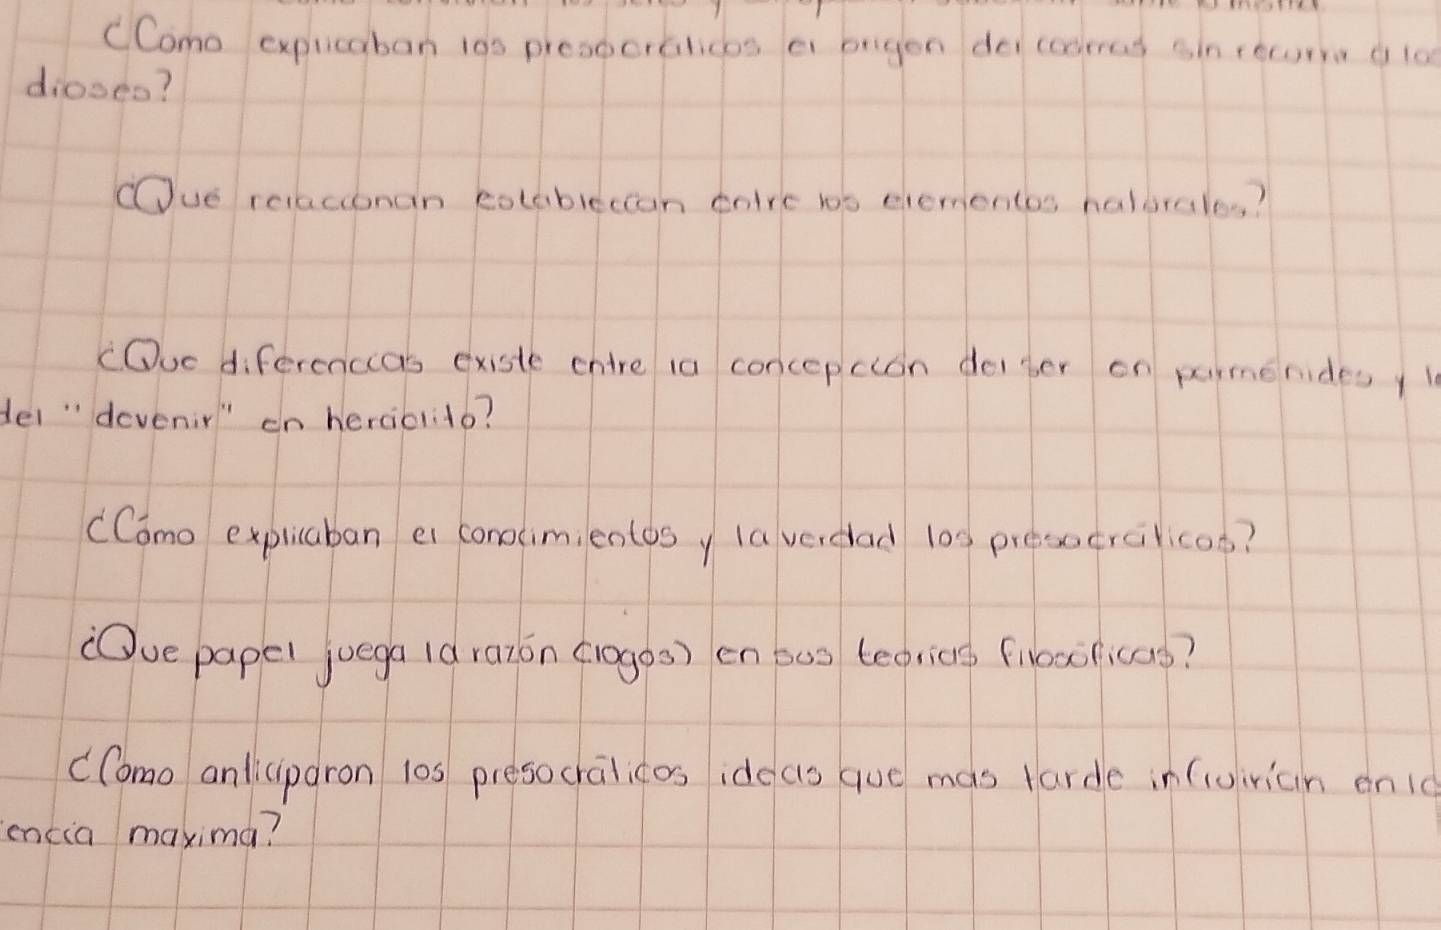 ¿Como explicaban los presocráticos el origen del cosmos sin recurrir a los
dioses?
¿Que relaccionan estableccan entre los elementos naturales?
¿Que diferenccias existe entre la concepcción del ser en parménides y lo
del "devenir" en heráclito?
¿Cómo explicaban el conocimientos y la verdad los presocráticos?
¿Que papel juega la razón (logos) en sus teorias filosóficas?
¿Como anticiparon los presocráticos ideas que mas tarde influirían en la
encia maxima?